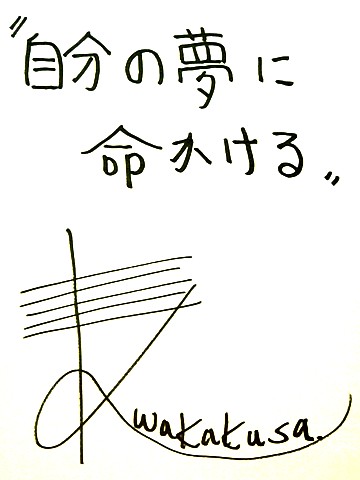 〝自分の夢に
命かける〟
wakakusa.